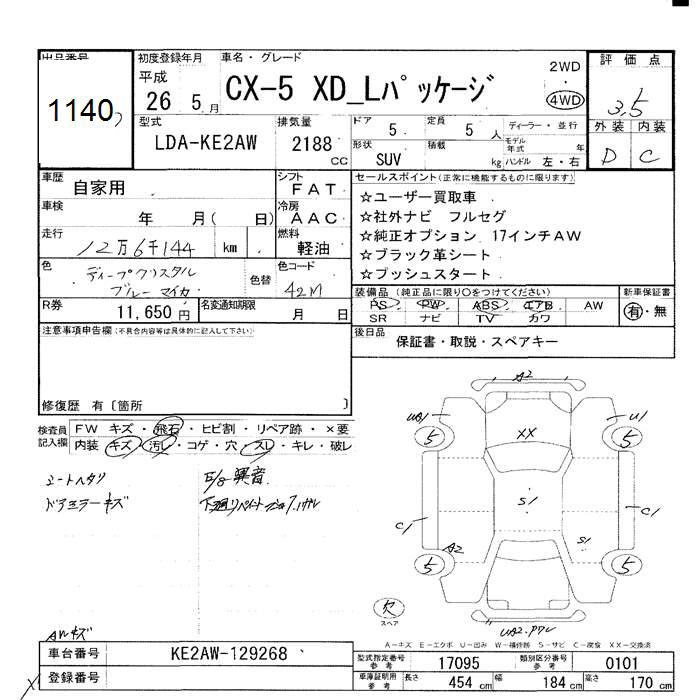 出品番号
1140
初度登録年月
平成
26 5月
車名・グレード
CX-5 XD_Lパッケージ
2WD
・
4WD
評価点
3.5
外装 内装
D C
型式
LDA-KE2AW
排気量
2188
cc
ドア
5
定員
5人
ディーラー・並行
モデル年式 年
形状
SUV
積載
kg
ハンドル 左・右
車歴
自家用
シフト
FAT
車検
年 月( 日)
冷房
AAC
走行
12万6千144 km
燃料
軽油
色
ディープクリスタル
ブルーマイカ
色替
色コード
42M
R券
11,650円
名変通知期限
月 日
セールスポイント(正常に機能するものに限ります)
☆ユーザー買取車
☆社外ナビ フルセグ
☆純正オプション 17インチAW
☆ブラック革シート
☆プッシュスタート
装備品(純正品に限り○をつけてください)
PS PW ABS エアB AW
SR ナビ TV カワ
新車保証書
有・無
後日品
保証書・取説・スペアキー
注意事項申告欄(不具合内容等は具体的に記入して下さい)
修復歴 有〔箇所 〕
検査員記入欄
FW キズ・飛石・ヒビ割・リペア跡・×要
内装 キズ・汚レ・コゲ・穴・スレ・キレ・破レ
シートヘタリ
ドアミラーキズ
E/g 異音
AWキズ
A2
UA1
U1
5
5
XX
S1
C1
C1
S1
A2
5
5
欠
スペア
A-キズ E-エクボ U-凹み W-補修跡 S-サビ C-腐食 XX-交換済
車台番号
KE2AW-129268
登録番号
型式指定番号
参考
17095
類別区分番号
参考
0101
車庫証明用
参考
長さ 454 cm
幅 184 cm
高さ 170 cm